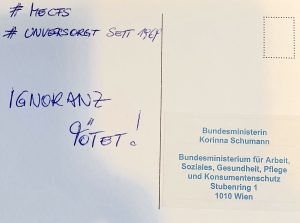 # MECFS
# UNVERSORGT SEIT 1969
IGNORANZ
TÖTET!
Bundesministerin
Korinna Schumann
Bundesministerium für Arbeit,
Soziales, Gesundheit, Pflege
und Konsumentenschutz
Stubenring 1
1010 Wien